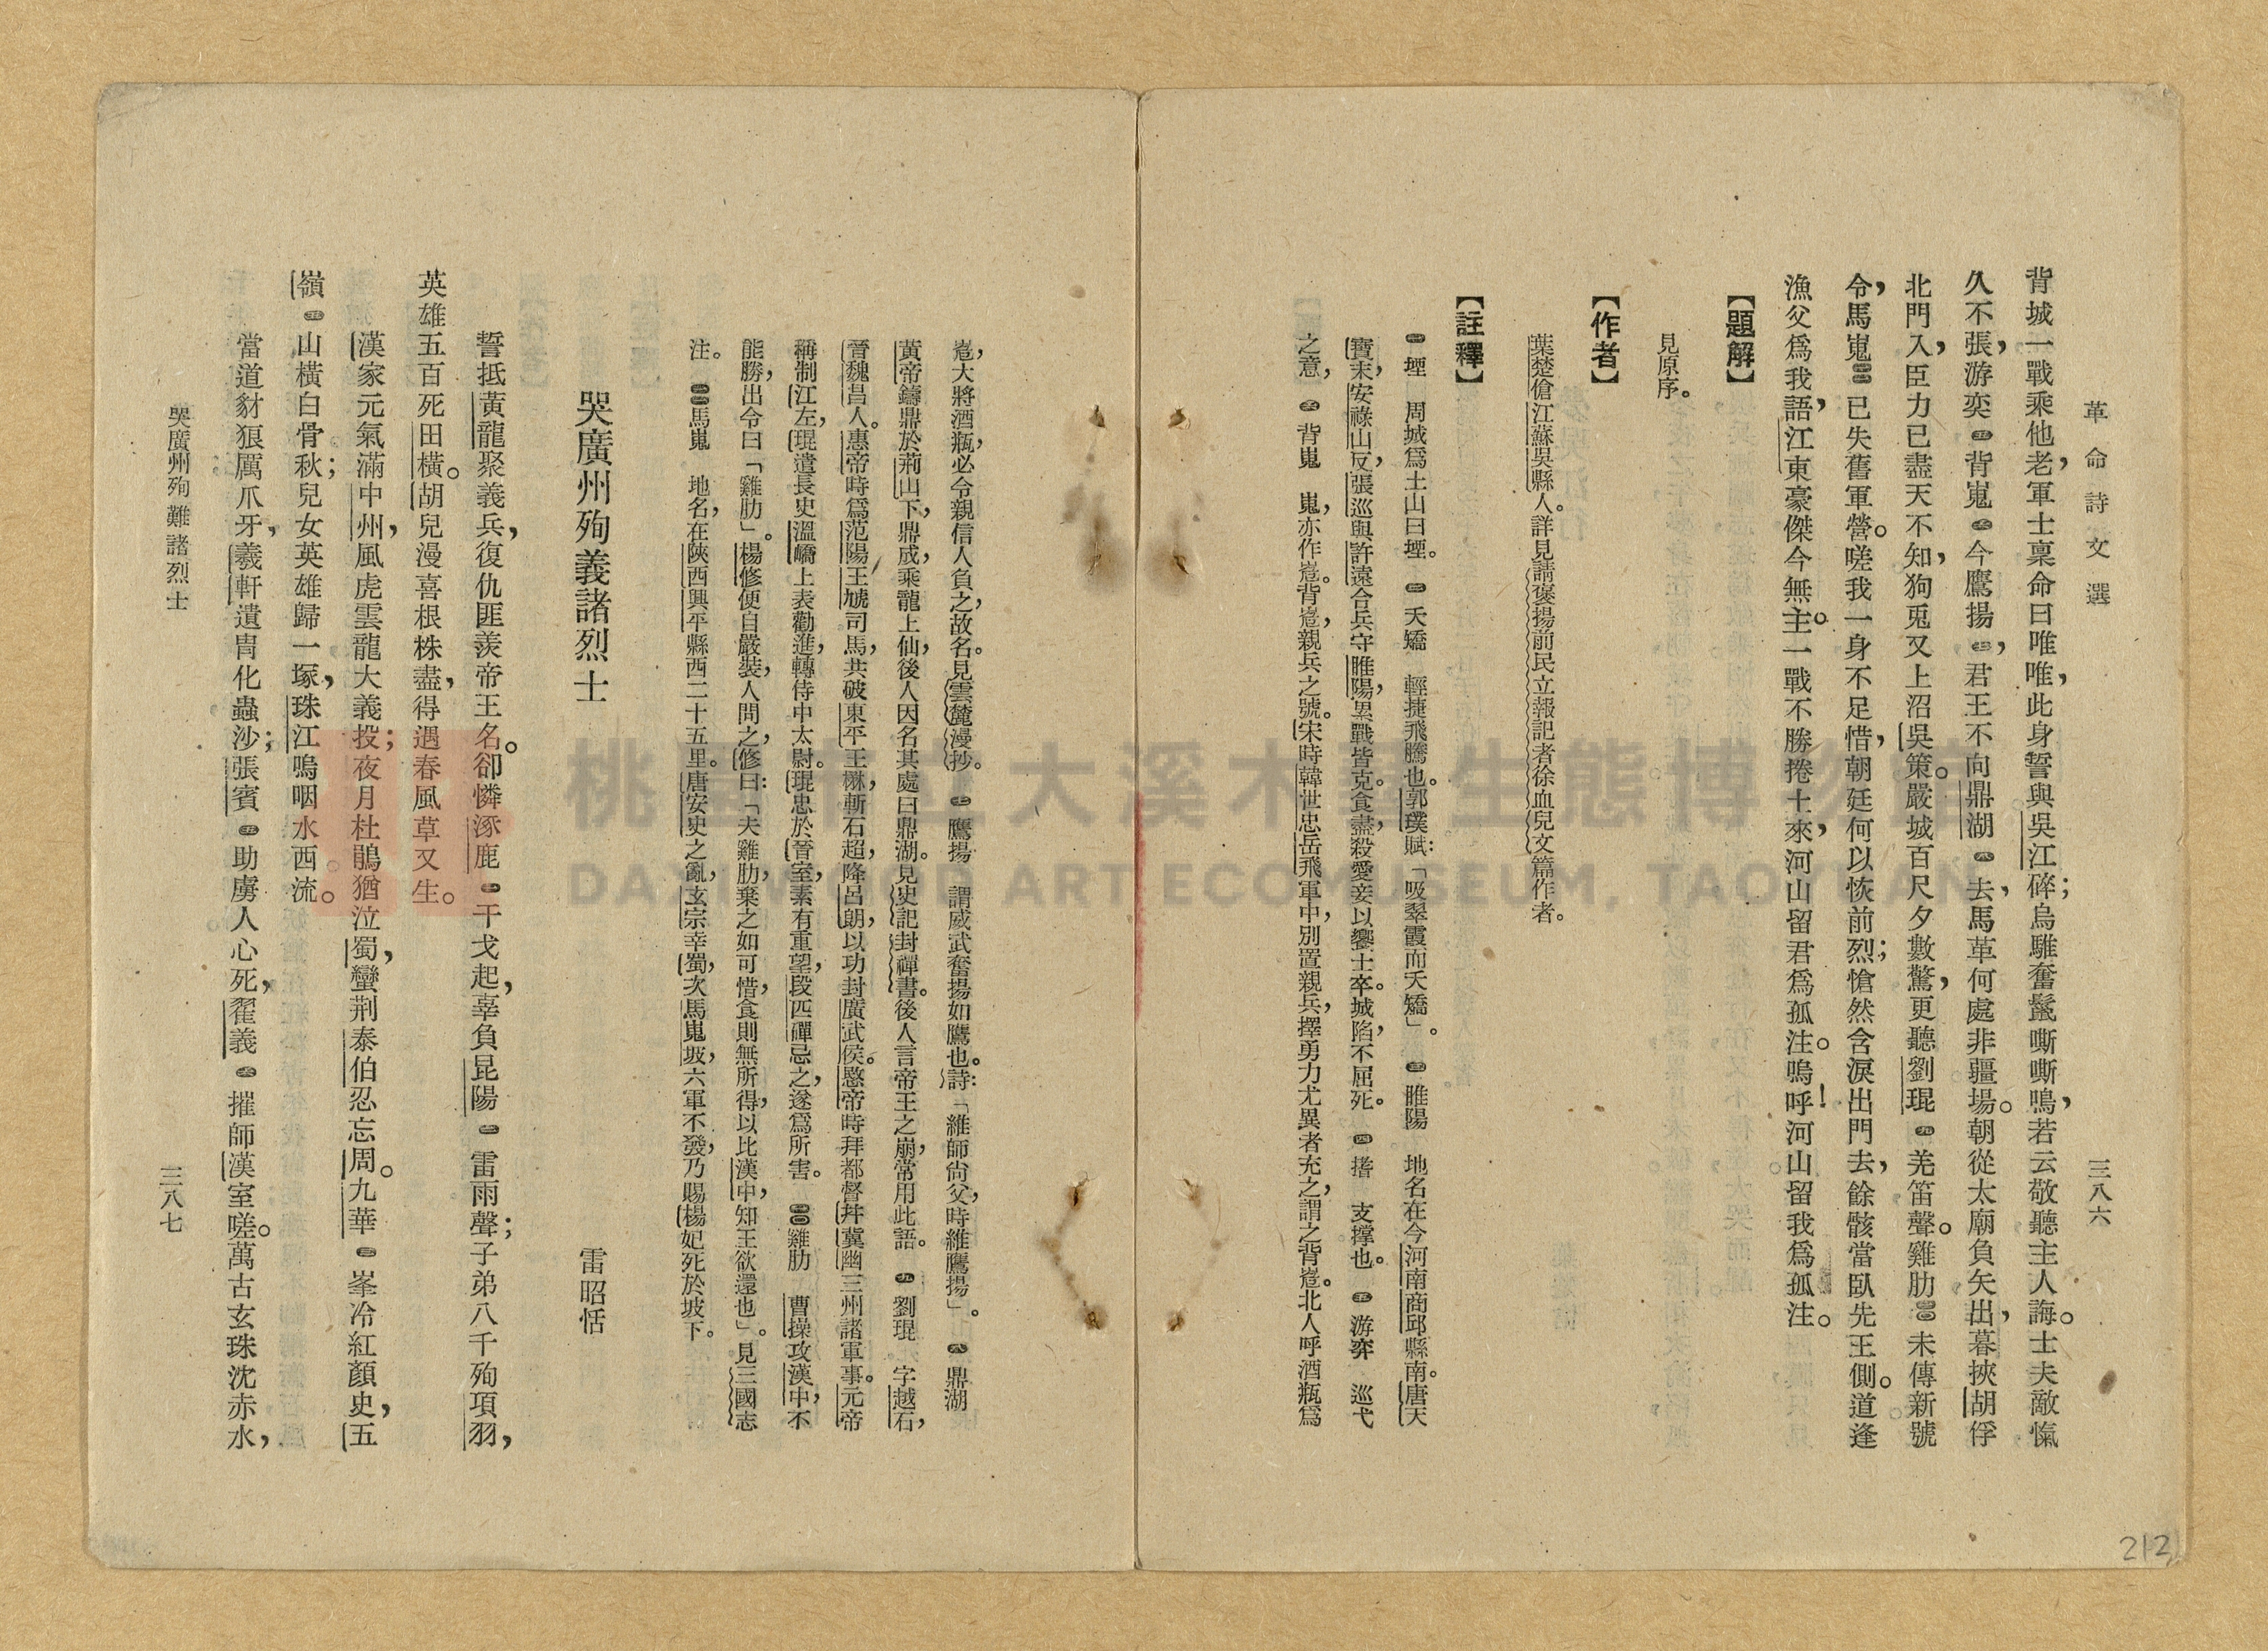 革命詩文選
三八六
背城一戰乘他老，軍士稟命曰唯唯，此身誓與吳江碎；烏騅奮鬣嘶嘶鳴，若云敬聽主人誨。士夫敵愾
久不張，游奕㊄背嵬㊅今鷹揚㊆，君王不向鼎湖㊇去，馬革何處非疆場。朝從太廟負矢出，暮挾胡俘
北門入，臣力已盡天不知，狗兎又上沼吳策。嚴城百尺夕數驚，更聽劉琨㊈羌笛聲。雞肋㊉未傳新號
令，馬嵬㊀㊀已失舊軍營。嗟我一身不足惜，朝廷何以恢前烈；愴然含淚出門去，餘骸當臥先王側。道逢
漁父爲我語，江東豪傑今無主。一戰不勝捲土來，河山留君爲孤注。嗚呼！河山留我爲孤注。
【題解】
見原序。
【作者】
葉楚傖江蘇吳縣人。詳見請褒揚前民立報記者徐血兒文篇作者。
【註釋】
㊀堙　周城爲土山曰堙。　㊁夭矯　輕捷飛騰也。郭璞賦：「吸翠霞而夭矯」。　㊂睢陽　地名在今河南商邱縣南。唐天
寶末，安祿山反，張巡與許遠合兵守睢陽，累戰皆克。食盡，殺愛妾以饗士卒。城陷，不屈死。　㊃㨙　支撐也。　㊄游弈　巡弋
之意，　㊅背嵬　嵬，亦作峞。背峞，親兵之號。宋時韓世忠岳飛軍中，別置親兵，擇勇力尤異者充之，謂之背峞。北人呼酒瓶爲
峞，大將酒瓶，必令親信人負之，故名。見雲麓漫抄。　㊆鷹揚　謂威武奮揚如鷹也。詩：「維師尙父，時維鷹揚」。　㊇鼎湖
黃帝鑄鼎於荊山下，鼎成，乘龍上仙，後人因名其處曰鼎湖。見史記封禪書。後人言帝王之崩，常用此語。　㊈劉琨　字越石，
晉魏昌人。惠帝時爲范陽王虓司馬，共破東平王楙，斬石超，降呂朗，以功封廣武侯。愍帝時拜都督幷冀幽三州諸軍事。元帝
稱制江左，琨遣長史溫嶠上表勸進，轉侍中太尉。琨忠於晉室，素有重望，段匹磾忌之，遂爲所害。　㊉雞肋　曹操攻漢中，不
能勝，出令曰「雞肋」。楊修便自嚴裝，人問之，修曰：「夫雞肋，棄之如可惜，食則無所得，以比漢中，知王欲還也」。見三國志
注。　㊀㊀馬嵬　地名，在陝西興平縣西二十五里。唐安史之亂，玄宗幸蜀，次馬嵬坡，六軍不發，乃賜楊妃死於坡下。
哭廣州殉義諸烈士
雷昭恬
誓抵黃龍聚義兵，復仇匪羨帝王名。卻憐涿鹿㊀干戈起，辜負昆陽㊁雷雨聲；子弟八千殉項羽，
英雄五百死田橫。胡兒漫喜根株盡，得遇春風草又生。
漢家元氣滿中州，風虎雲龍大義投；夜月杜鵑猶泣蜀，蠻荆泰伯忍忘周。九華㊂峯冷紅顏史，五
嶺㊃山橫白骨秋；兒女英雄歸一塚，珠江嗚咽水西流。
當道豺狼厲爪牙，羲軒遺胄化蟲沙；張賓㊄助虜人心死，翟義㊅摧師漢室嗟。萬古玄珠沈赤水，
哭廣州殉難諸烈士
三八七
桃園市立大溪木藝生態博物館
DAXI WOOD ART ECOMUSEUM, TAOYUAN
212